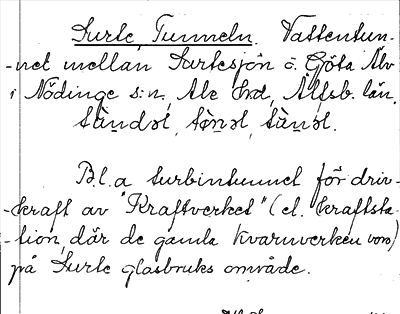 Surte, Tunneln. Vattentun-
-nel mellan Surtesjön o. Göta Älv
i Nödinge s:n, Ale hrd, Älfsb. län.
Bl.a turbintunnel för driv-
-kraft av "Kraftverket" (el. kraftsta-
-tion, där de gamla kvarnverken voro)
på Surte glasbruks område.